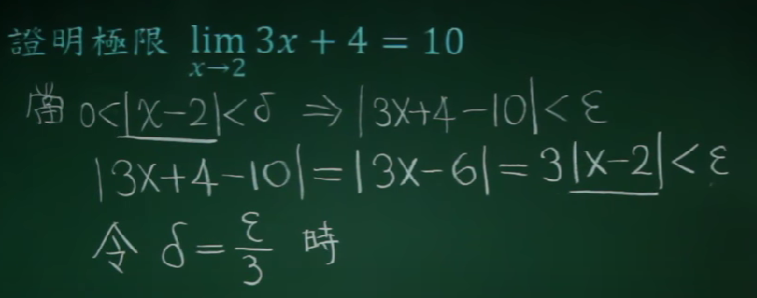 證明極限 lim x→2 3x + 4 = 10
當 0<|x-2|<δ ⇒ |3x+4-10|<ε
|3x+4-10|=|3x-6|=3|x-2|<ε
令 δ=ε/3 時